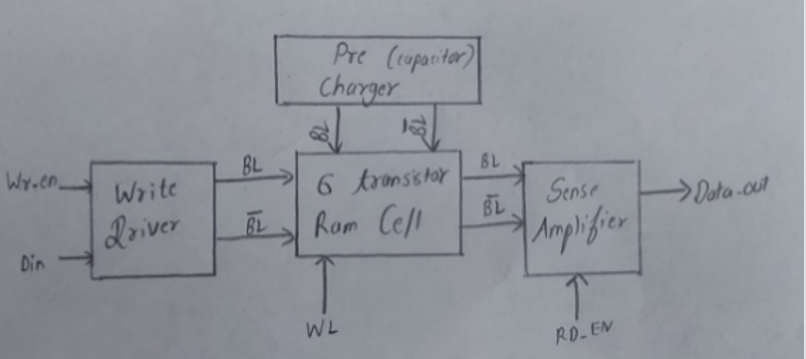 Pre (capacitor)
Charger
BL
B̅L̅
Wr_en
Din
Write
Driver
BL
B̅L̅
6 transistor
Ram Cell
WL
BL
B̅L̅
Sense
Amplifier
RD_EN
Data_out